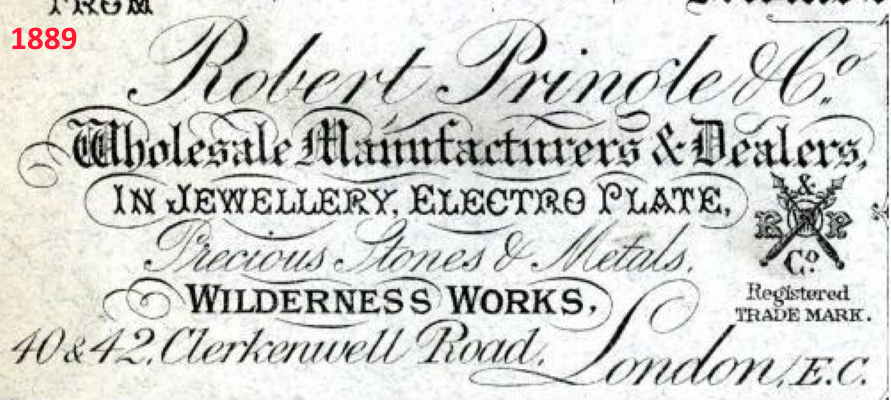 FROM
1889
Robert Pringle & Co.
Wholesale Manufacturers & Dealers,
IN JEWELLERY, ELECTRO PLATE,
Precious Stones & Metals,
WILDERNESS WORKS,
40 & 42, Clerkenwell Road,
London, E.C.
&
R P
Co
Registered
TRADE MARK.